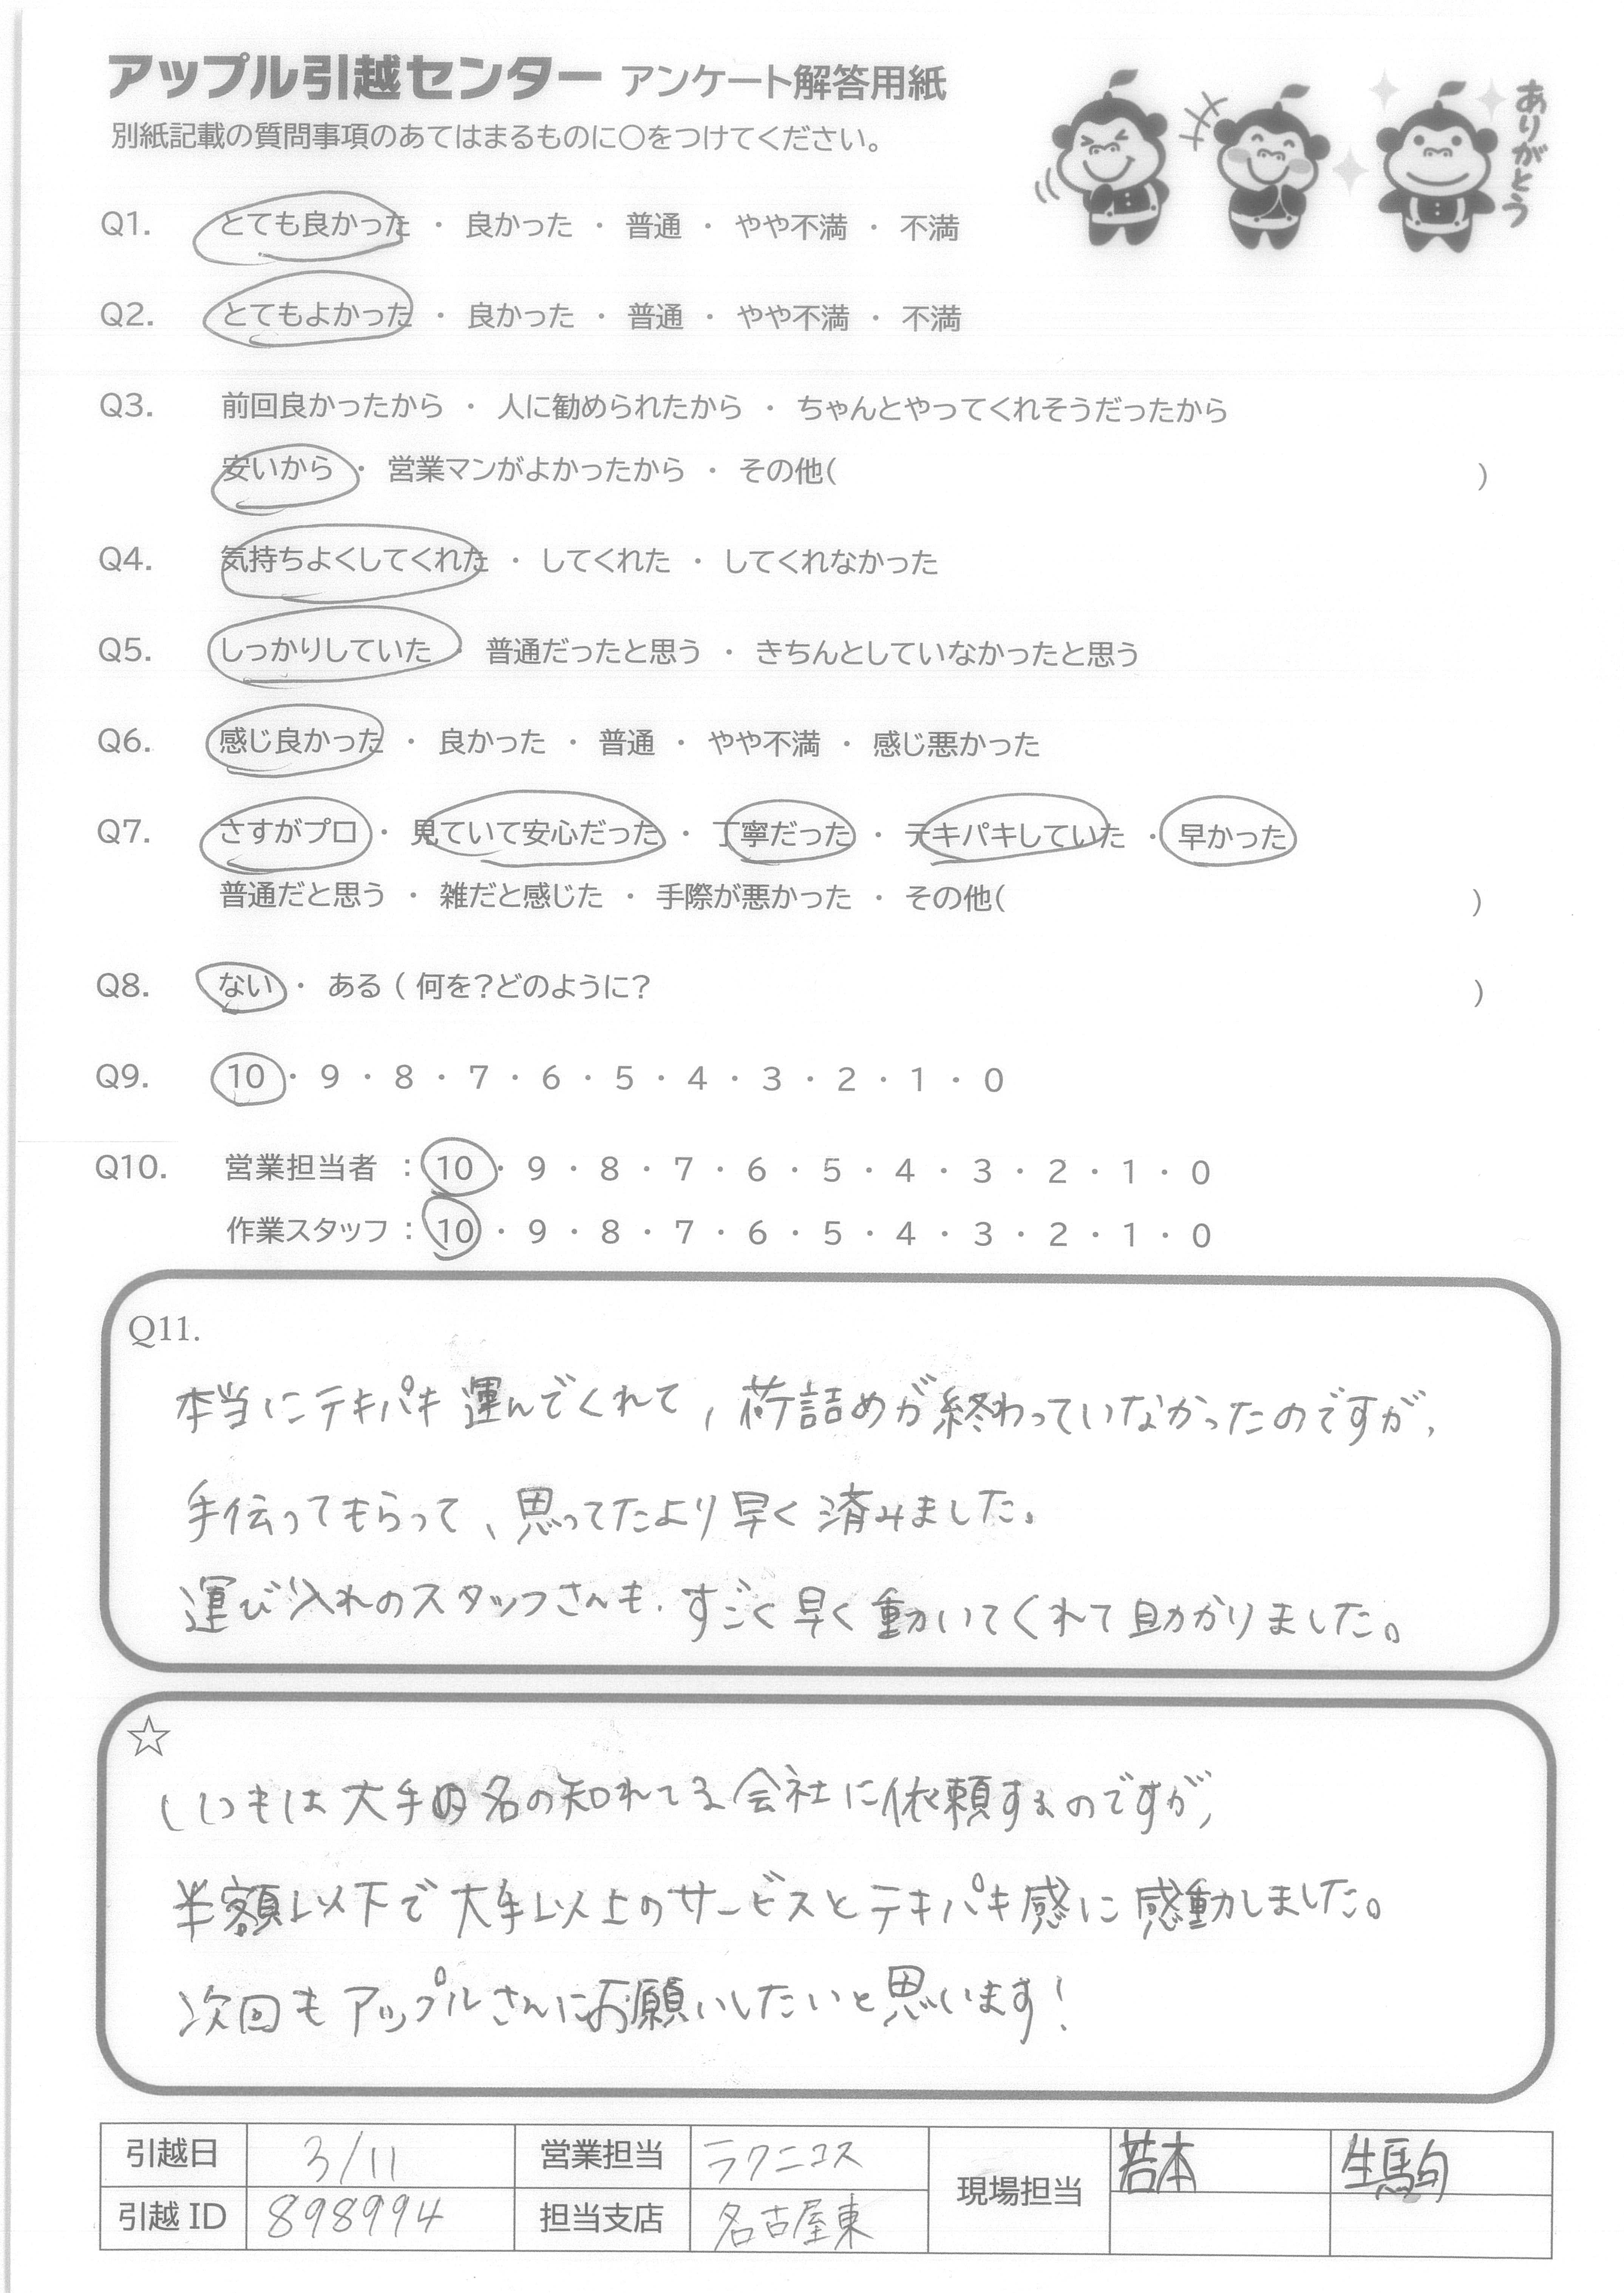 アップル引越センター アンケート解答用紙
別紙記載の質問事項のあてはまるものに〇をつけてください。
ありがとう
Q1. とても良かった ・ 良かった ・ 普通 ・ やや不満 ・ 不満
Q2. とてもよかった ・ 良かった ・ 普通 ・ やや不満 ・ 不満
Q3. 前回良かったから ・ 人に勧められたから ・ ちゃんとやってくれそうだったから
安いから ・ 営業マンがよかったから ・ その他( )
Q4. 気持ちよくしてくれた ・ してくれた ・ してくれなかった
Q5. しっかりしていた ・ 普通だったと思う ・ きちんとしていなかったと思う
Q6. 感じ良かった ・ 良かった ・ 普通 ・ やや不満 ・ 感じ悪かった
Q7. さすがプロ ・ 見ていて安心だった ・ 丁寧だった ・ テキパキしていた ・ 早かった
普通だと思う ・ 雑だと感じた ・ 手際が悪かった ・ その他( )
Q8. ない ・ ある ( 何を?どのように? )
Q9. 10 ・ 9 ・ 8 ・ 7 ・ 6 ・ 5 ・ 4 ・ 3 ・ 2 ・ 1 ・ 0
Q10. 営業担当者 : 10 ・ 9 ・ 8 ・ 7 ・ 6 ・ 5 ・ 4 ・ 3 ・ 2 ・ 1 ・ 0
作業スタッフ : 10 ・ 9 ・ 8 ・ 7 ・ 6 ・ 5 ・ 4 ・ 3 ・ 2 ・ 1 ・ 0
Q11.
本当にテキパキ運んでくれて、荷詰めが終わっていなかったのですが、
手伝ってもらって、思ってたより早く済みました。
運び入れのスタッフさんも、すごく早く動いてくれて助かりました。
☆
いつもは大手の名の知れてる会社に依頼するのですが、
半額以下で大手以上のサービスとテキパキ感に感動しました。
次回もアップルさんにお願いしたいと思います!
引越日 3/11 営業担当 ラクニコス 現場担当 若本 生駒
引越 ID 898994 担当支店 名古屋東